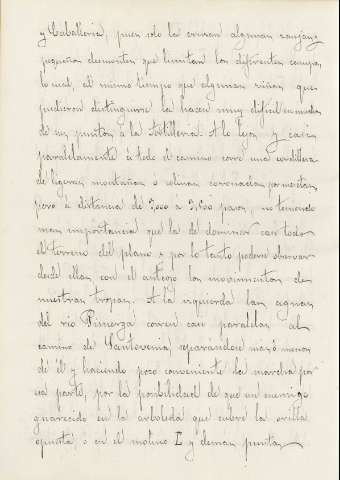 y Caballeria, pues solo la cruzan algunas zanjas y
pequeños elementos que limitan los diferentes campos
lo cual, al mismo tiempo que algunas viñas que
pudieron distinguirse la hacen muy dificil en mas
de un punto a la Artilleria. A lo lejos y casi
paralelamente a todo el camino corre una cordillera
de ligeras montañas ó colinas coronadas por mesetas,
pero á distancia de 3,000 a 3,600 pasos, no teniendo
mas importancia que la de dominar casi todo
el terreno del plano y por lo tanto poderse observar
desde ellas con el anteojo los movimientos de
nuestras tropas. A la izquierda las aguas
del rio Pisuerga corren casi paralelas al
camino de Santovenia, separandose mas ó menos
de él y haciendo poco conveniente la marcha por
esa parte, por la posibilidad de que un enemigo
guarecido en la arboleda que cubre la orilla
opuesta, o en el molino E y demas puntos